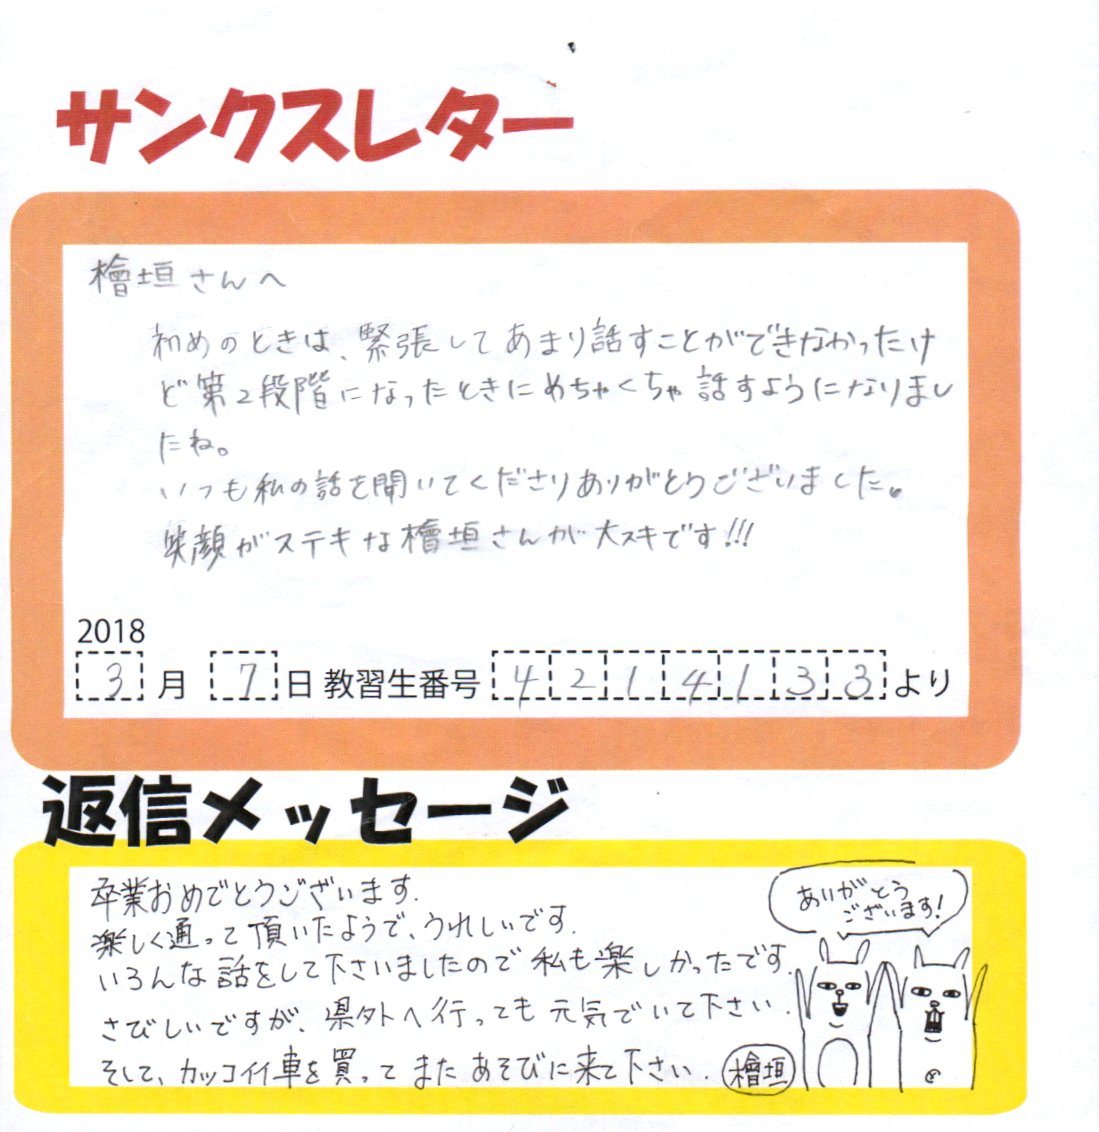 サンクスレター
檜垣さんへ
初めのときは、緊張してあまり話すことができなかったけ
ど第2段階になったときにめちゃくちゃ話すようになりまし
たね。
いつも私の話を聞いてくださりありがとうございました。
笑顔がステキな檜垣さんが大スキです!!!
2018
3月 7日 教習生番号 4214133 より
返信メッセージ
卒業おめでとうございます.
楽しく通って頂いたようで、うれしいです.
いろんな話をして下さいましたので私も楽しかったです.
さびしいですが、県外へ行っても元気でいて下さい.
そして、カッコイイ車を買ってまたあそびに来て下さい. 檜垣
ありがとう
ございます!